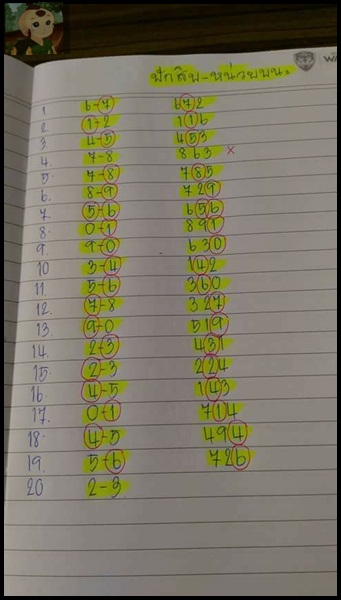 ปักสิบ-หน่วยบน
1 6-7 672
2. 1-2 116
3 4-5 453
4. 7-8 863 ×
5. 7-8 785
6. 8-9 729
7. 5-6 656
8. 0-1 891
9. 9-0 630
10 3-4 142
11. 5-6 360
12. 7-8 327
13. 9-0 519
14. 2-3 431
15. 2-3 224
16. 4-5 143
17. 0-1 714
18. 4-5 494
19. 5-6 726
20 2-3